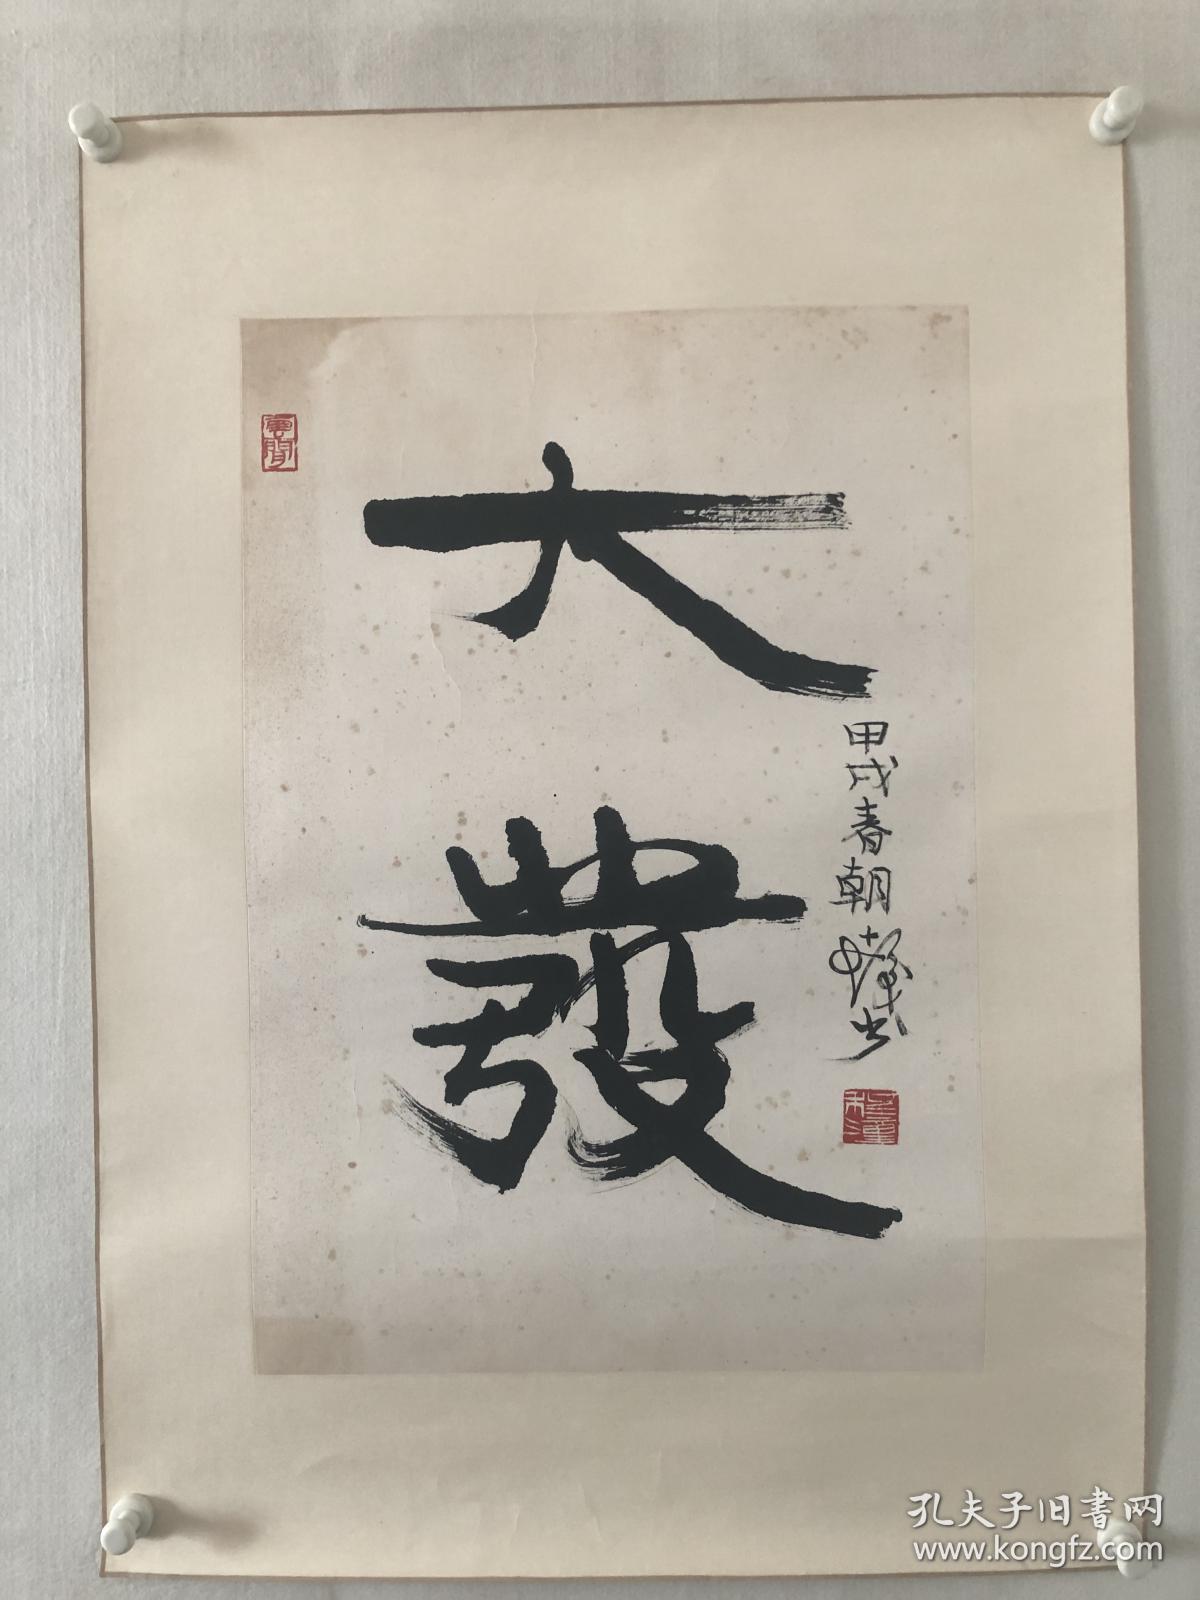 大發
甲戌春朝
書
孔夫子旧書网
www.kongfz.com